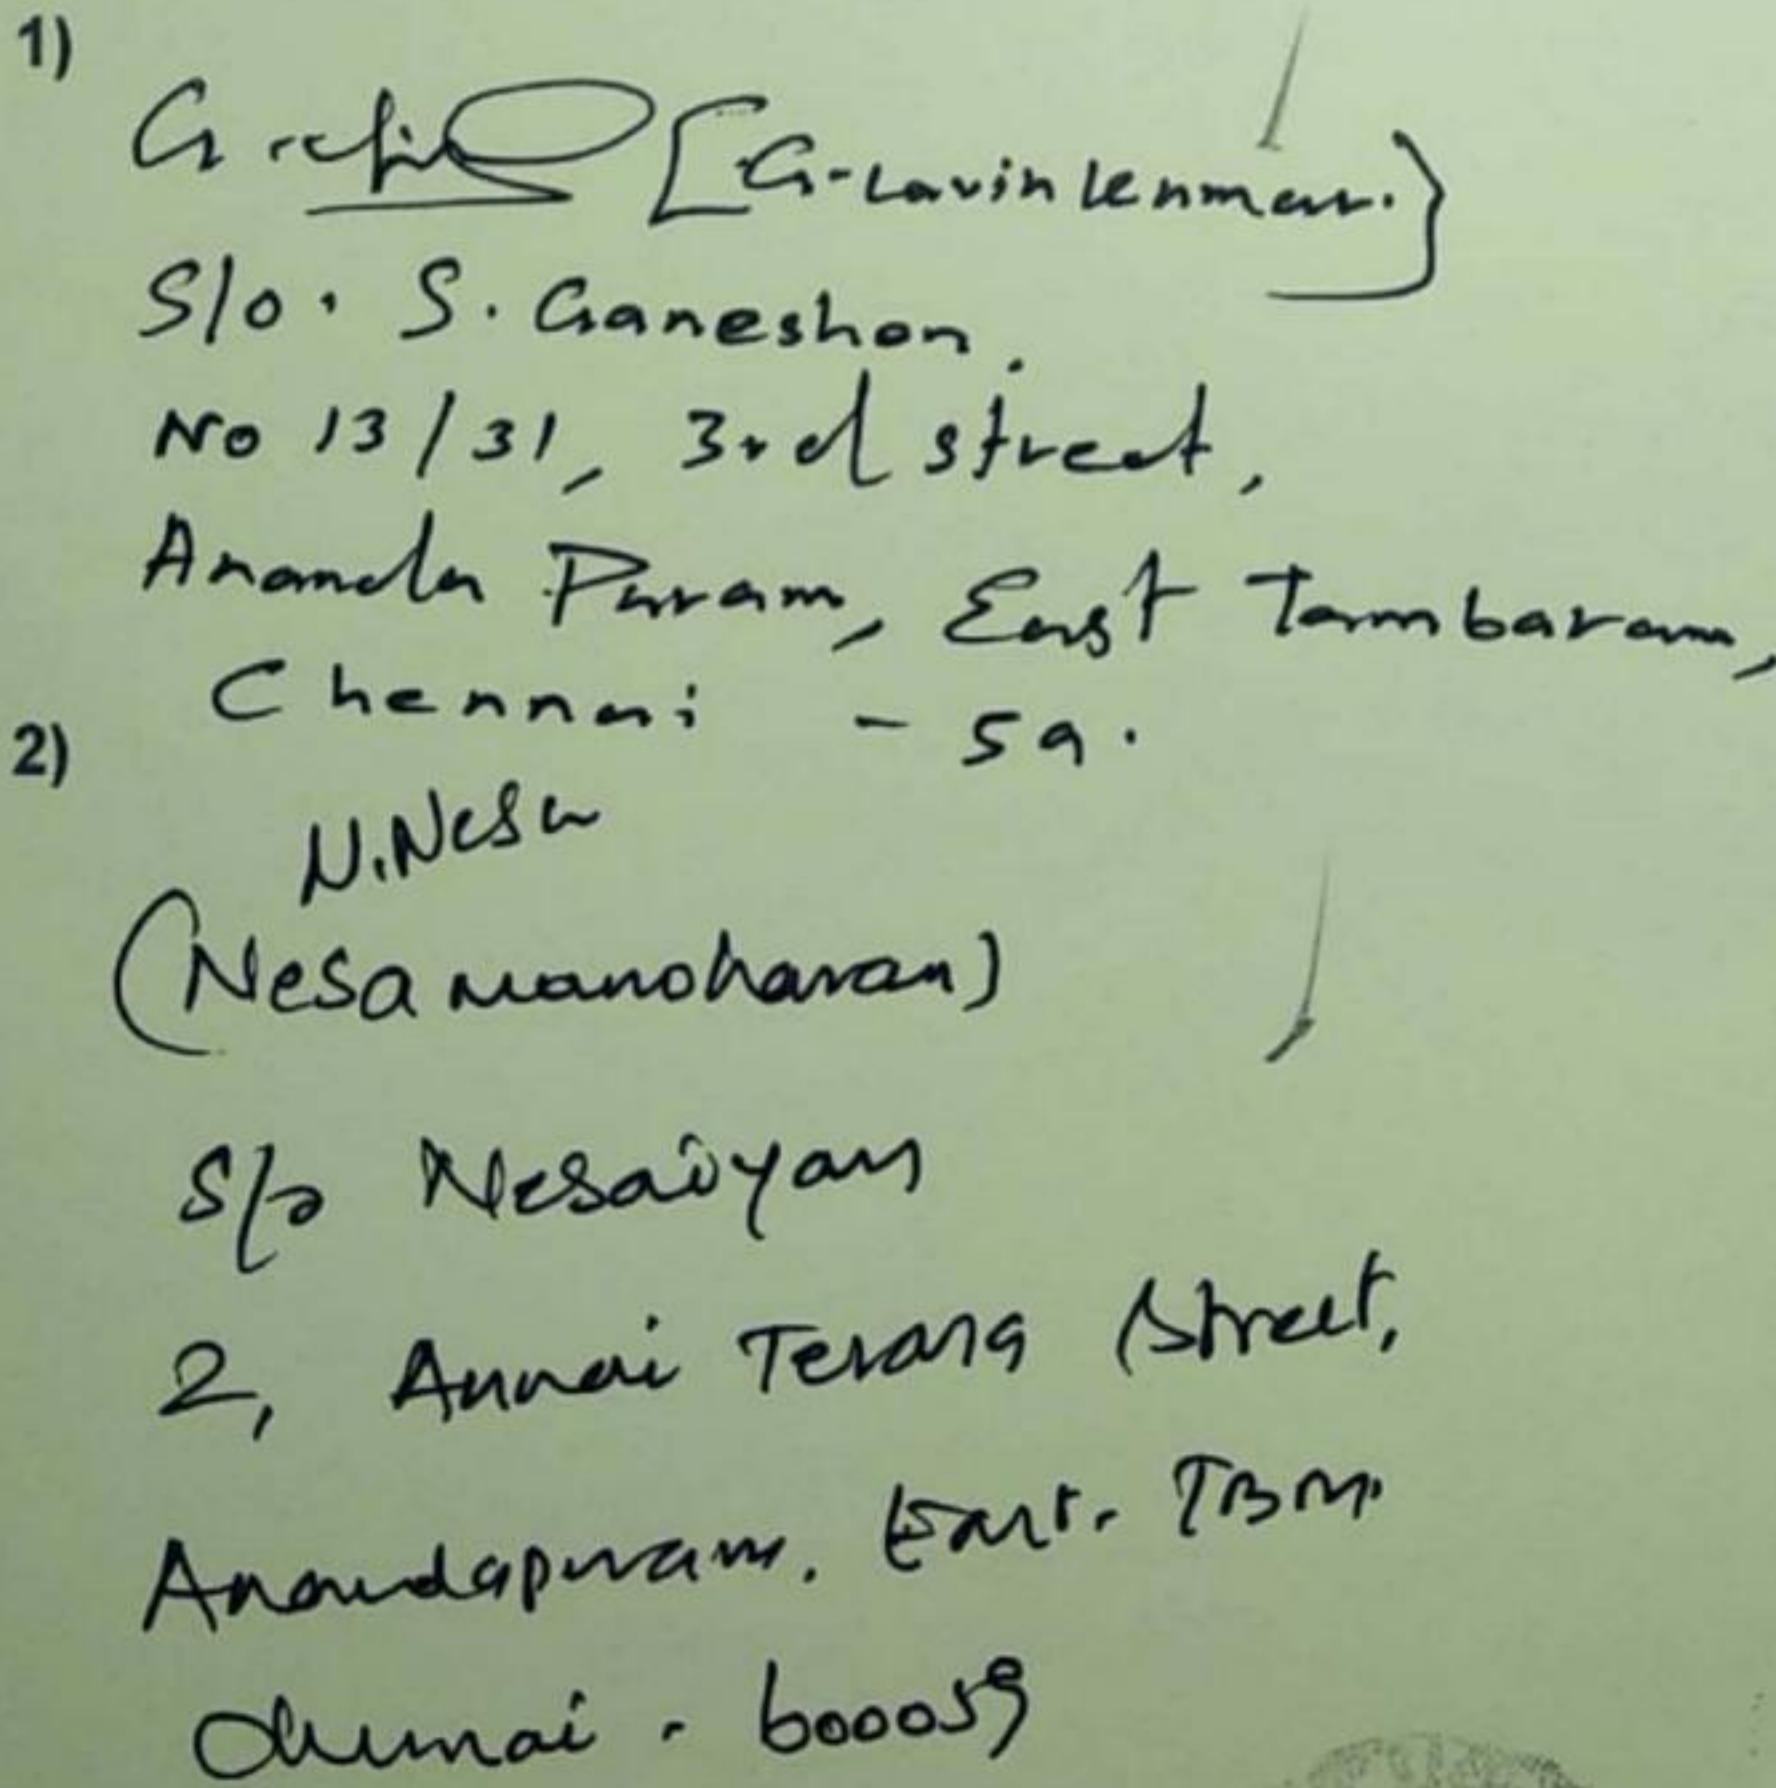 1)
[G. Lavin lenman.]
S/o. S. Ganeshan.
No 13/31, 3rd street,
Ananda Puram, East Tambaram,
Chennai - 59.
2)
N. Nesa
(Nesa manoharan)
S/o Nesaiyan
2, Annai Terasa Street,
Anandapuram. East. TBM.
Chennai - 600059